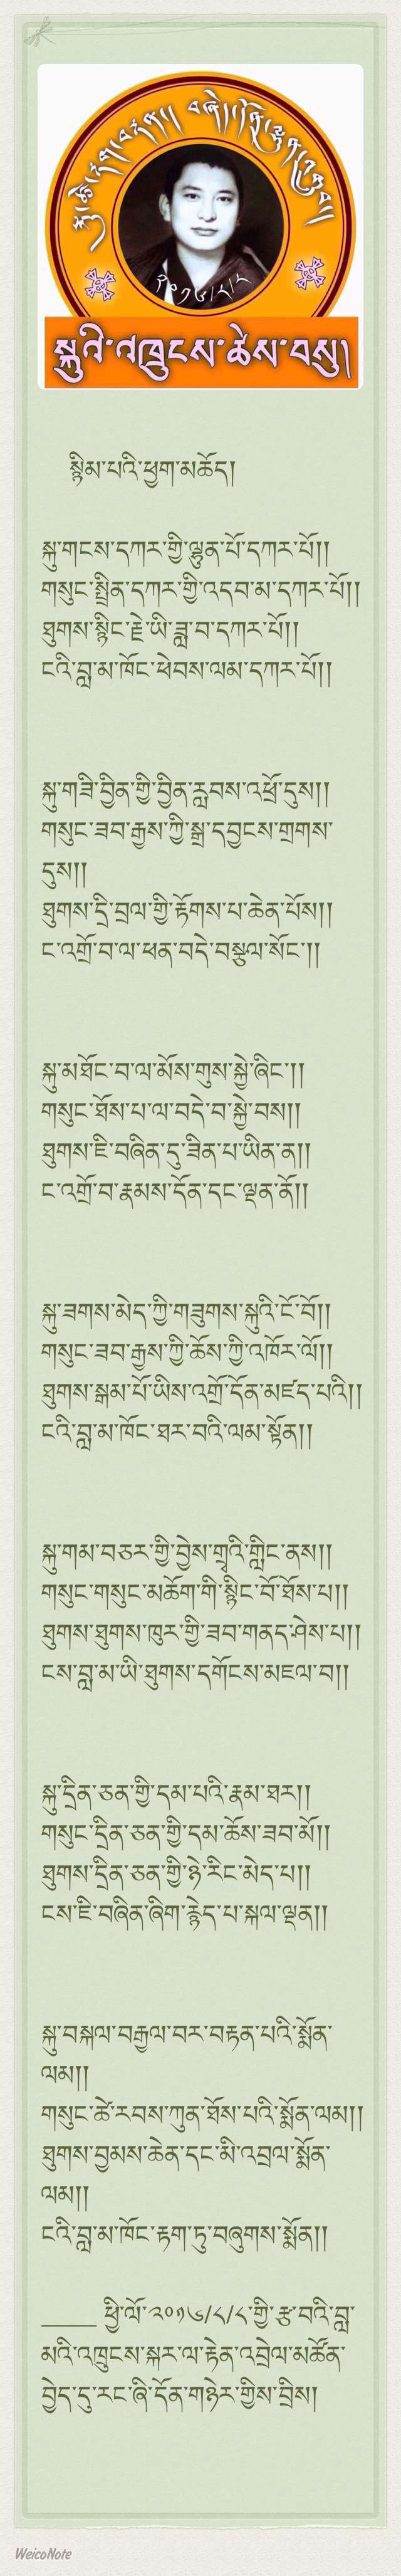 ༢༠༡༦/༨/༨
སྐུའི་འཁྲུངས་ཚེས་བསུ།
སྙིམ་པའི་ཕྱག་མཆོད།
སྐུ་གངས་དཀར་གྱི་ལྷུན་པོ་དཀར་པོ།།
གསུང་སྤྲིན་དཀར་གྱི་འདབ་མ་དཀར་པོ།།
ཐུགས་སྙིང་རྗེ་ཡི་ཟླ་བ་དཀར་པོ།།
ངའི་བླ་མ་ཁོང་ཕེབས་ལམ་དཀར་པོ།།
སྐུ་གཟི་བྱིན་གྱི་བྱིན་རླབས་འཕྲོ་དུས།།
གསུང་ཟབ་རྒྱས་ཀྱི་སྒྲ་དབྱངས་གྲགས་
དུས།།
ཐུགས་དྲི་བྲལ་གྱི་རྟོགས་པ་ཆེན་པོས།།
ང་འགྲོ་བ་ལ་ཕན་བདེ་བསྩལ་སོང་།།
སྐུ་མཐོང་བ་ལ་མོས་གུས་སྐྱེ་ཞིང་།།
གསུང་ཐོས་པ་ལ་བདེ་བ་སྐྱེ་བས།།
ཐུགས་ཇི་བཞིན་དུ་ཟིན་པ་ཡིན་ན།།
ང་འགྲོ་བ་རྣམས་དོན་དང་ལྡན་ནོ།།
སྐུ་ཟགས་མེད་ཀྱི་གཟུགས་སྐུའི་ངོ་བོ།།
གསུང་ཟབ་རྒྱས་ཀྱི་ཆོས་ཀྱི་འཁོར་ལོ།།
ཐུགས་སྒམ་པོ་ཡིས་འགྲོ་དོན་མཛད་པའི།།
ངའི་བླ་མ་ཁོང་ཐར་བའི་ལམ་སྟོན།།
སྐུ་གམ་བཅར་གྱི་བྱེས་གྲྭའི་གླིང་ནས།།
གསུང་གསུང་མཆོག་གི་སྙིང་བོ་ཐོས་པ།།
ཐུགས་ཐུགས་ཁུར་གྱི་ཟབ་གནད་ཤེས་པ།།
ངས་བླ་མ་ཡི་ཐུགས་དགོངས་མཇལ་བ།།
སྐུ་དྲིན་ཅན་གྱི་དམ་པའི་རྣམ་ཐར།།
གསུང་དྲིན་ཅན་གྱི་དམ་ཆོས་ཟབ་མོ།།
ཐུགས་དྲིན་ཅན་གྱི་ཉེ་རིང་མེད་པ།།
ངས་ཇི་བཞིན་ཞིག་རྙེད་པ་སྐལ་ལྡན།།
སྐུ་བསྐལ་བརྒྱལ་བར་བརྟན་པའི་སྨོན་
ལམ།།
གསུང་ཚེ་རབས་ཀུན་ཐོས་པའི་སྨོན་ལམ།།
ཐུགས་བྱམས་ཆེན་དང་མི་འབྲལ་སྨོན་
ལམ།།
ངའི་བླ་མ་ཁོང་རྟག་ཏུ་བཞུགས་སྨོན།།
_____ ཕྱི་ལོ་༢༠༡༦/༨/༨་གྱི་རྩ་བའི་བླ་
མའི་འཁྲུངས་སྐར་ལ་རྟེན་འབྲེལ་མཚོན་
བྱེད་དུ་རང་ཞི་དོན་གཉེར་གྱིས་བྲིས།
WeicoNote